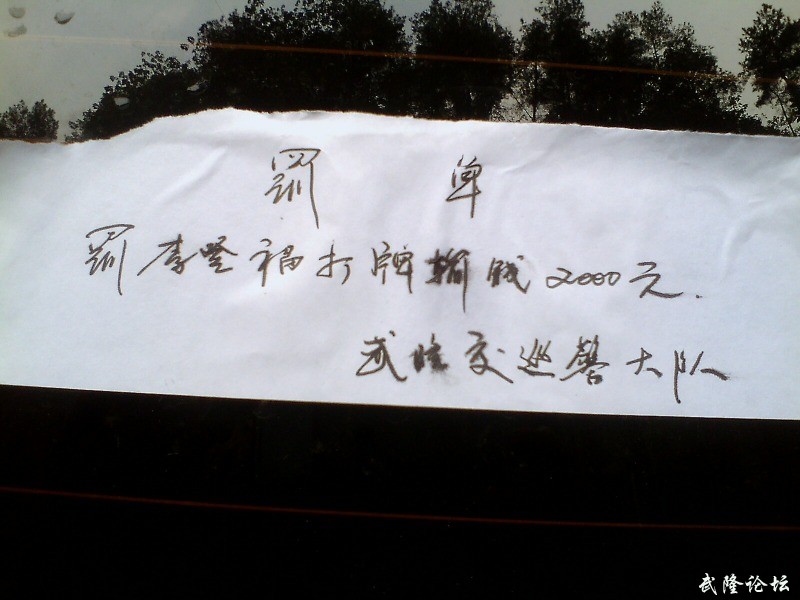 罚 单
罚李登福打牌输贱2000元.
武隆交巡警大队
武隆论坛